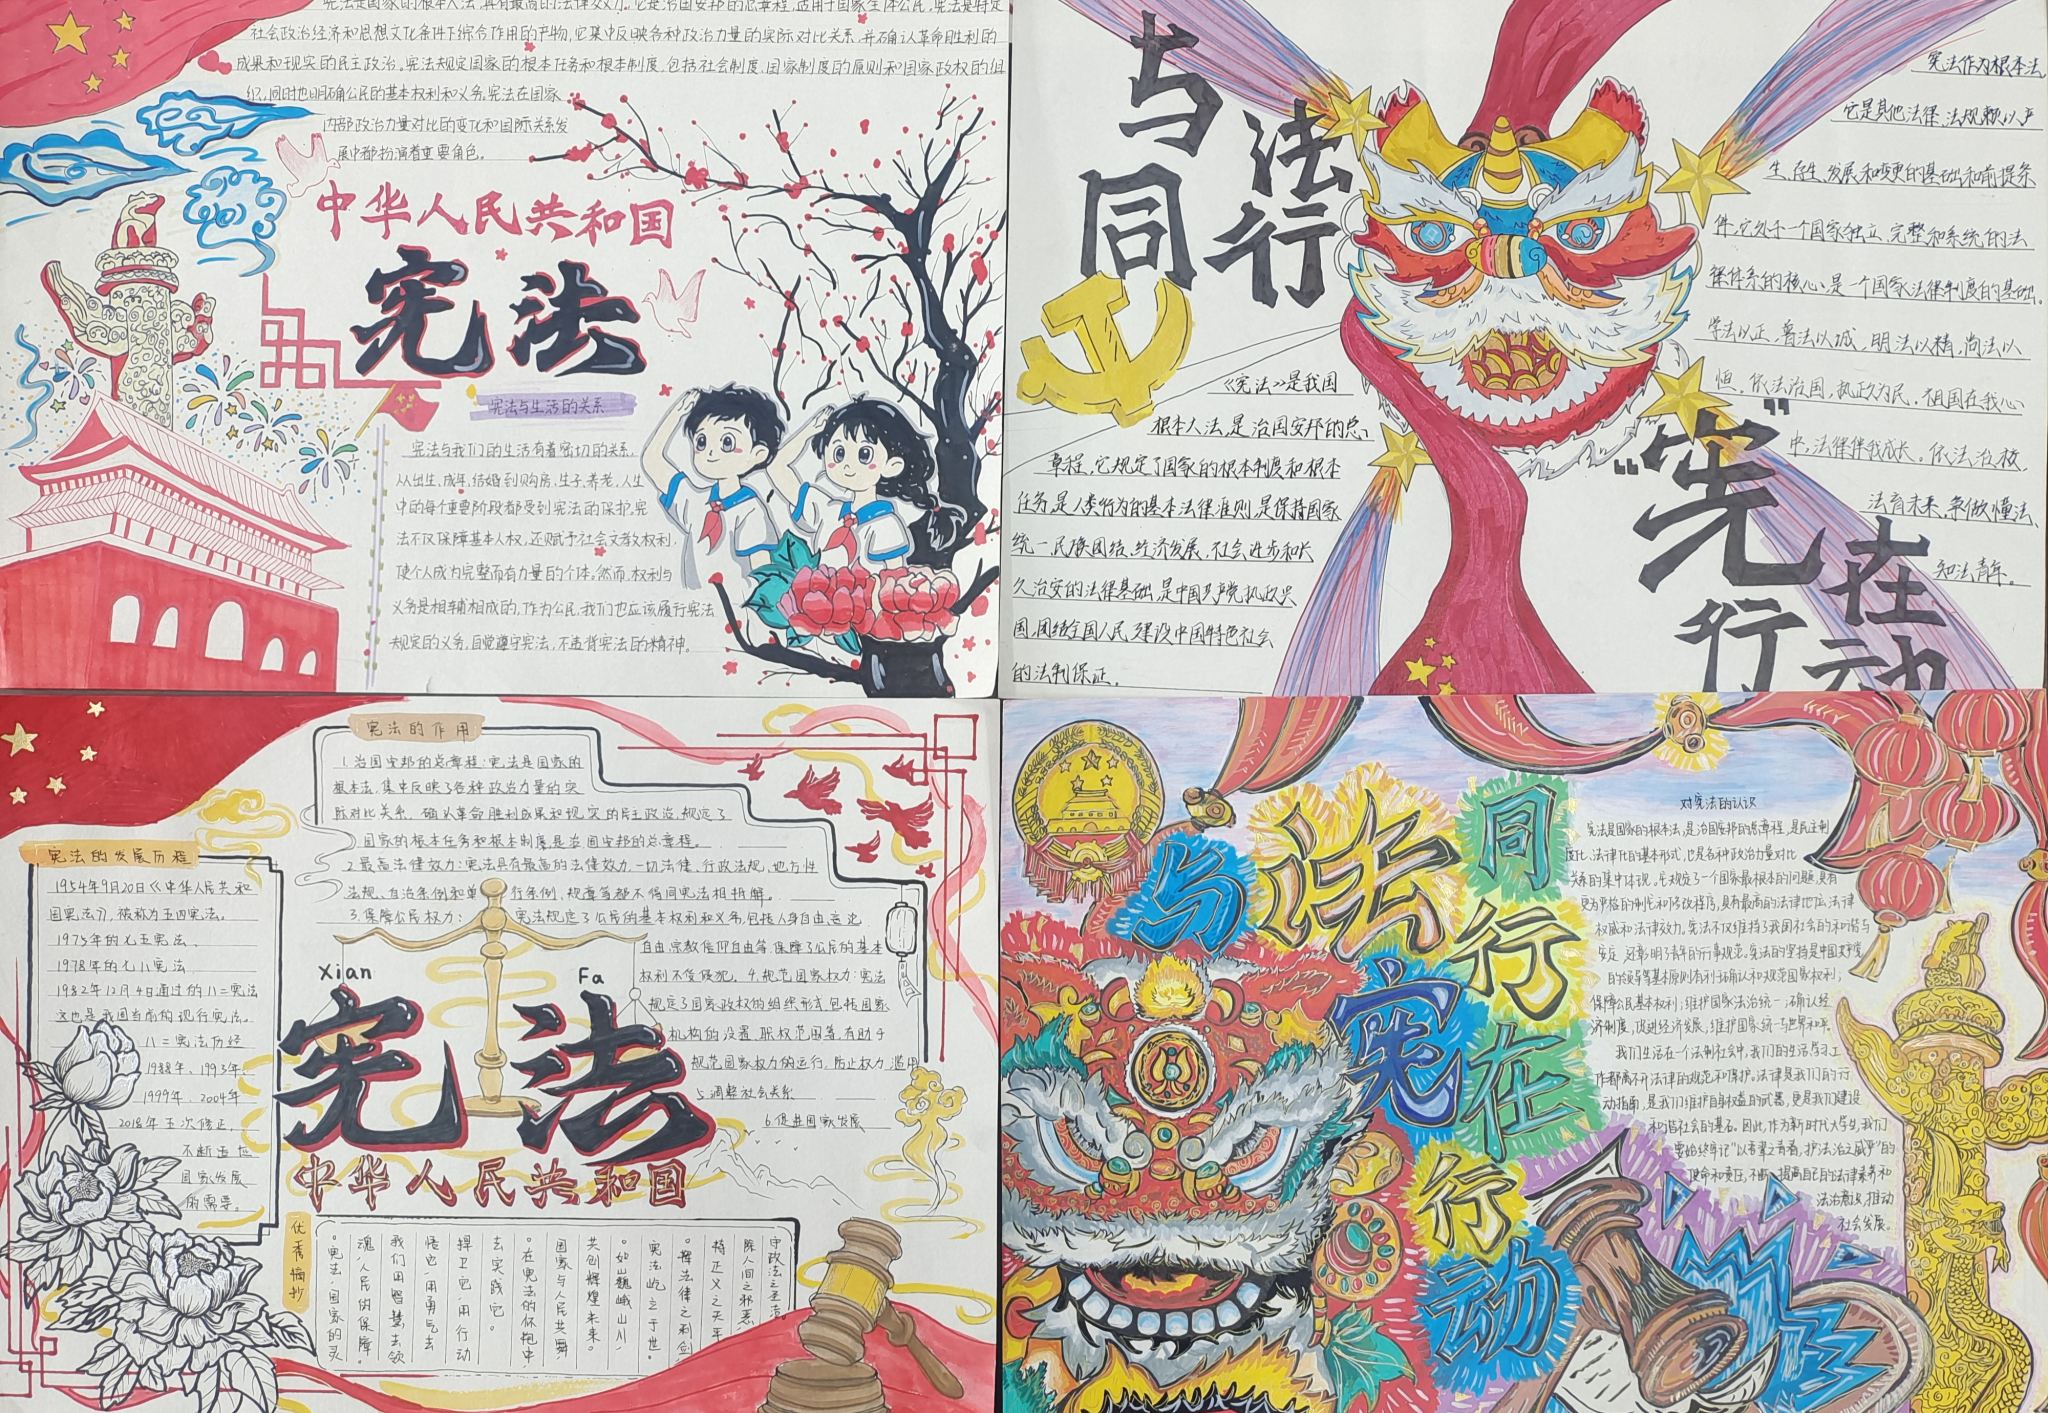 宪法是国家的根本大法,具有最高的法律效力。它是治国安邦的总章程,适用于国家全体公民,宪法是特定
社会政治经济和思想文化条件下综合作用的产物,它集中反映各种政治力量的实际对比关系,并确认革命胜利的
成果和现实的民主政治。宪法规定国家的根本任务和根本制度,包括社会制度、国家制度的原则和国家政权的组
织,同时也明确公民的基本权利和义务。宪法在国家
内部政治力量对比的变化和国际关系发
展中都扮演着重要角色。
中华人民共和国
宪法
宪法与生活的关系
宪法与我们的生活有着密切的关系,
从出生、成年、结婚到购房、生子、养老,人生
中的每个重要阶段都受到宪法的保护。宪
法不仅保障基本人权,还赋予社会文教权利,
使个人成为完整而有力量的个体。然而,权利与
义务是相辅相成的,作为公民,我们也应该履行宪法
规定的义务,自觉遵守宪法,不违背宪法的精神。
与法
同行
《宪法》是我国
根本大法,是治国安邦的总
章程,它规定了国家的根本制度和根本
任务,是人类行为的基本法律准则,是保持国家
统一、民族团结、经济发展、社会进步和长
久治安的法律基础,是中国共产党执政兴
国,团结全国人民,建设中国特色社会
的法制保证。
宪法作为根本法,
它是其他法律、法规赖以产
生、存在、发展和变更的基础和前提条
件,它处于一个国家独立、完整和系统的法
律体系的核心,是一个国家法律制度的基础。
学法以正,鲁法以诚,明法以精,尚法以
恒。依法治国,执政为民。祖国在我心
中,法律伴我成长。依法治校,
法育未来,争做懂法、
知法青年。
“宪”在
行动
宪法的作用
1.治国安邦的总章程:宪法是国家的
根本法,集中反映了各种政治力量的实
际对比关系,确认革命胜利成果和现实的民主政治,规定了
国家的根本任务和根本制度,是治国安邦的总章程。
2.最高法律效力:宪法具有最高的法律效力,一切法律、行政法规、地方性
法规、自治条例和单行条例、规章等都不得同宪法相抵触。
3.保障公民权力: 宪法规定了公民的基本权利和义务,包括人身自由、言论
自由、宗教信仰自由等,保障了公民的基本
权利不受侵犯。4.规范国家权力:宪法
规定了国家政权的组织形式,包括国家
机构的设置、职权范围等,有助于
规范国家权力的运行,防止权力滥用
5.调整社会关系
6.促进国家发展
宪法的发展历程
1954年9月20日《中华人民共和
国宪法》,被称为五四宪法。
1975年的七五宪法、
1978年的七八宪法
1982年12月4日通过的八二宪法
这也是我国当前的现行宪法。
八二宪法历经
1988年、1993年、
1999年、2004年
2018年五次修正,
不断适应
国家发展
的需要。
Xian Fa
宪法
中华人民共和国
优秀摘抄
守政法之圣洁,
除人间之邪恶,
持正义之天平
·挥法律之利剑
宪法屹立于世。
·如山巍峨山川,
共创辉煌未来。
国家与人民共舞,
·在宪法的怀抱中
去实践它。
捍卫它,用行动
悟它,用勇气去
我们用智慧去领
魂,人民的保障。
·宪法,国家的灵
与法同行
宪在行动
对宪法的认识
宪法是国家的根本法,是治国安邦的总章程,是民主制
度化、法律化的基本形式,也是各种政治力量对比
关系的集中体现,它规定了一个国家最根本的问题,具有
更为严格的制定和修改程序,具有最高的法律地位、法律
权威和法律效力。宪法不仅维持了我国社会的和谐与
安定,还彰明了青年的行事规范。宪法的坚持是中国共产党
的领导等基本原则有利于确认和规范国家权利;
保障公民基本权利;维护国家法治统一;确认经
济制度,促进经济发展,维护国家统一与世界和平。
我们生活在一个法制社会中,我们的生活、学习、工
作都离不开法律的规范和保护。法律是我们的行
动指南,是我们维护自身权益的武器,更是我们建设
和谐社会的基石。因此,作为新时代大学生,我们
要始终牢记“以青春之青春,护法治之威严”的
使命和责任,不断提高自己的法律素养和
法治意识,推动
社会发展。